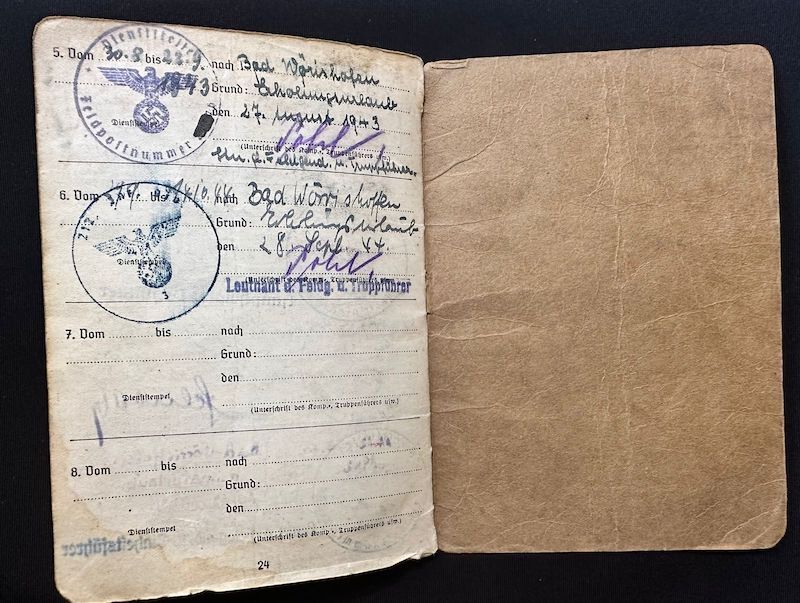 Dienststelle
Feldpostnummer
5. Vom 30.8. bis 22.9. nach Bad Wörishofen
1943 Grund: Erholungsurlaub
den 27. August 1943
Dienststempel
Pohl,
(Unterschrift des Komp.-, Truppenführers usw.)
Ltn. d. Feldgend. u. Truppführer.
6. Vom bis nach Bad Wörishofen
Grund: Erholungsurlaub
den 28. Sept. 44.
Dienststempel
3
Pohl,
(Unterschrift des Komp.-, Truppenführers usw.)
Leutnant d. Feldg. u. Truppführer
7. Vom bis nach
Grund:
den
Dienststempel
(Unterschrift des Komp.-, Truppenführers usw.)
8. Vom bis nach
Grund:
den
Dienststempel
(Unterschrift des Komp.-, Truppenführers usw.)
24